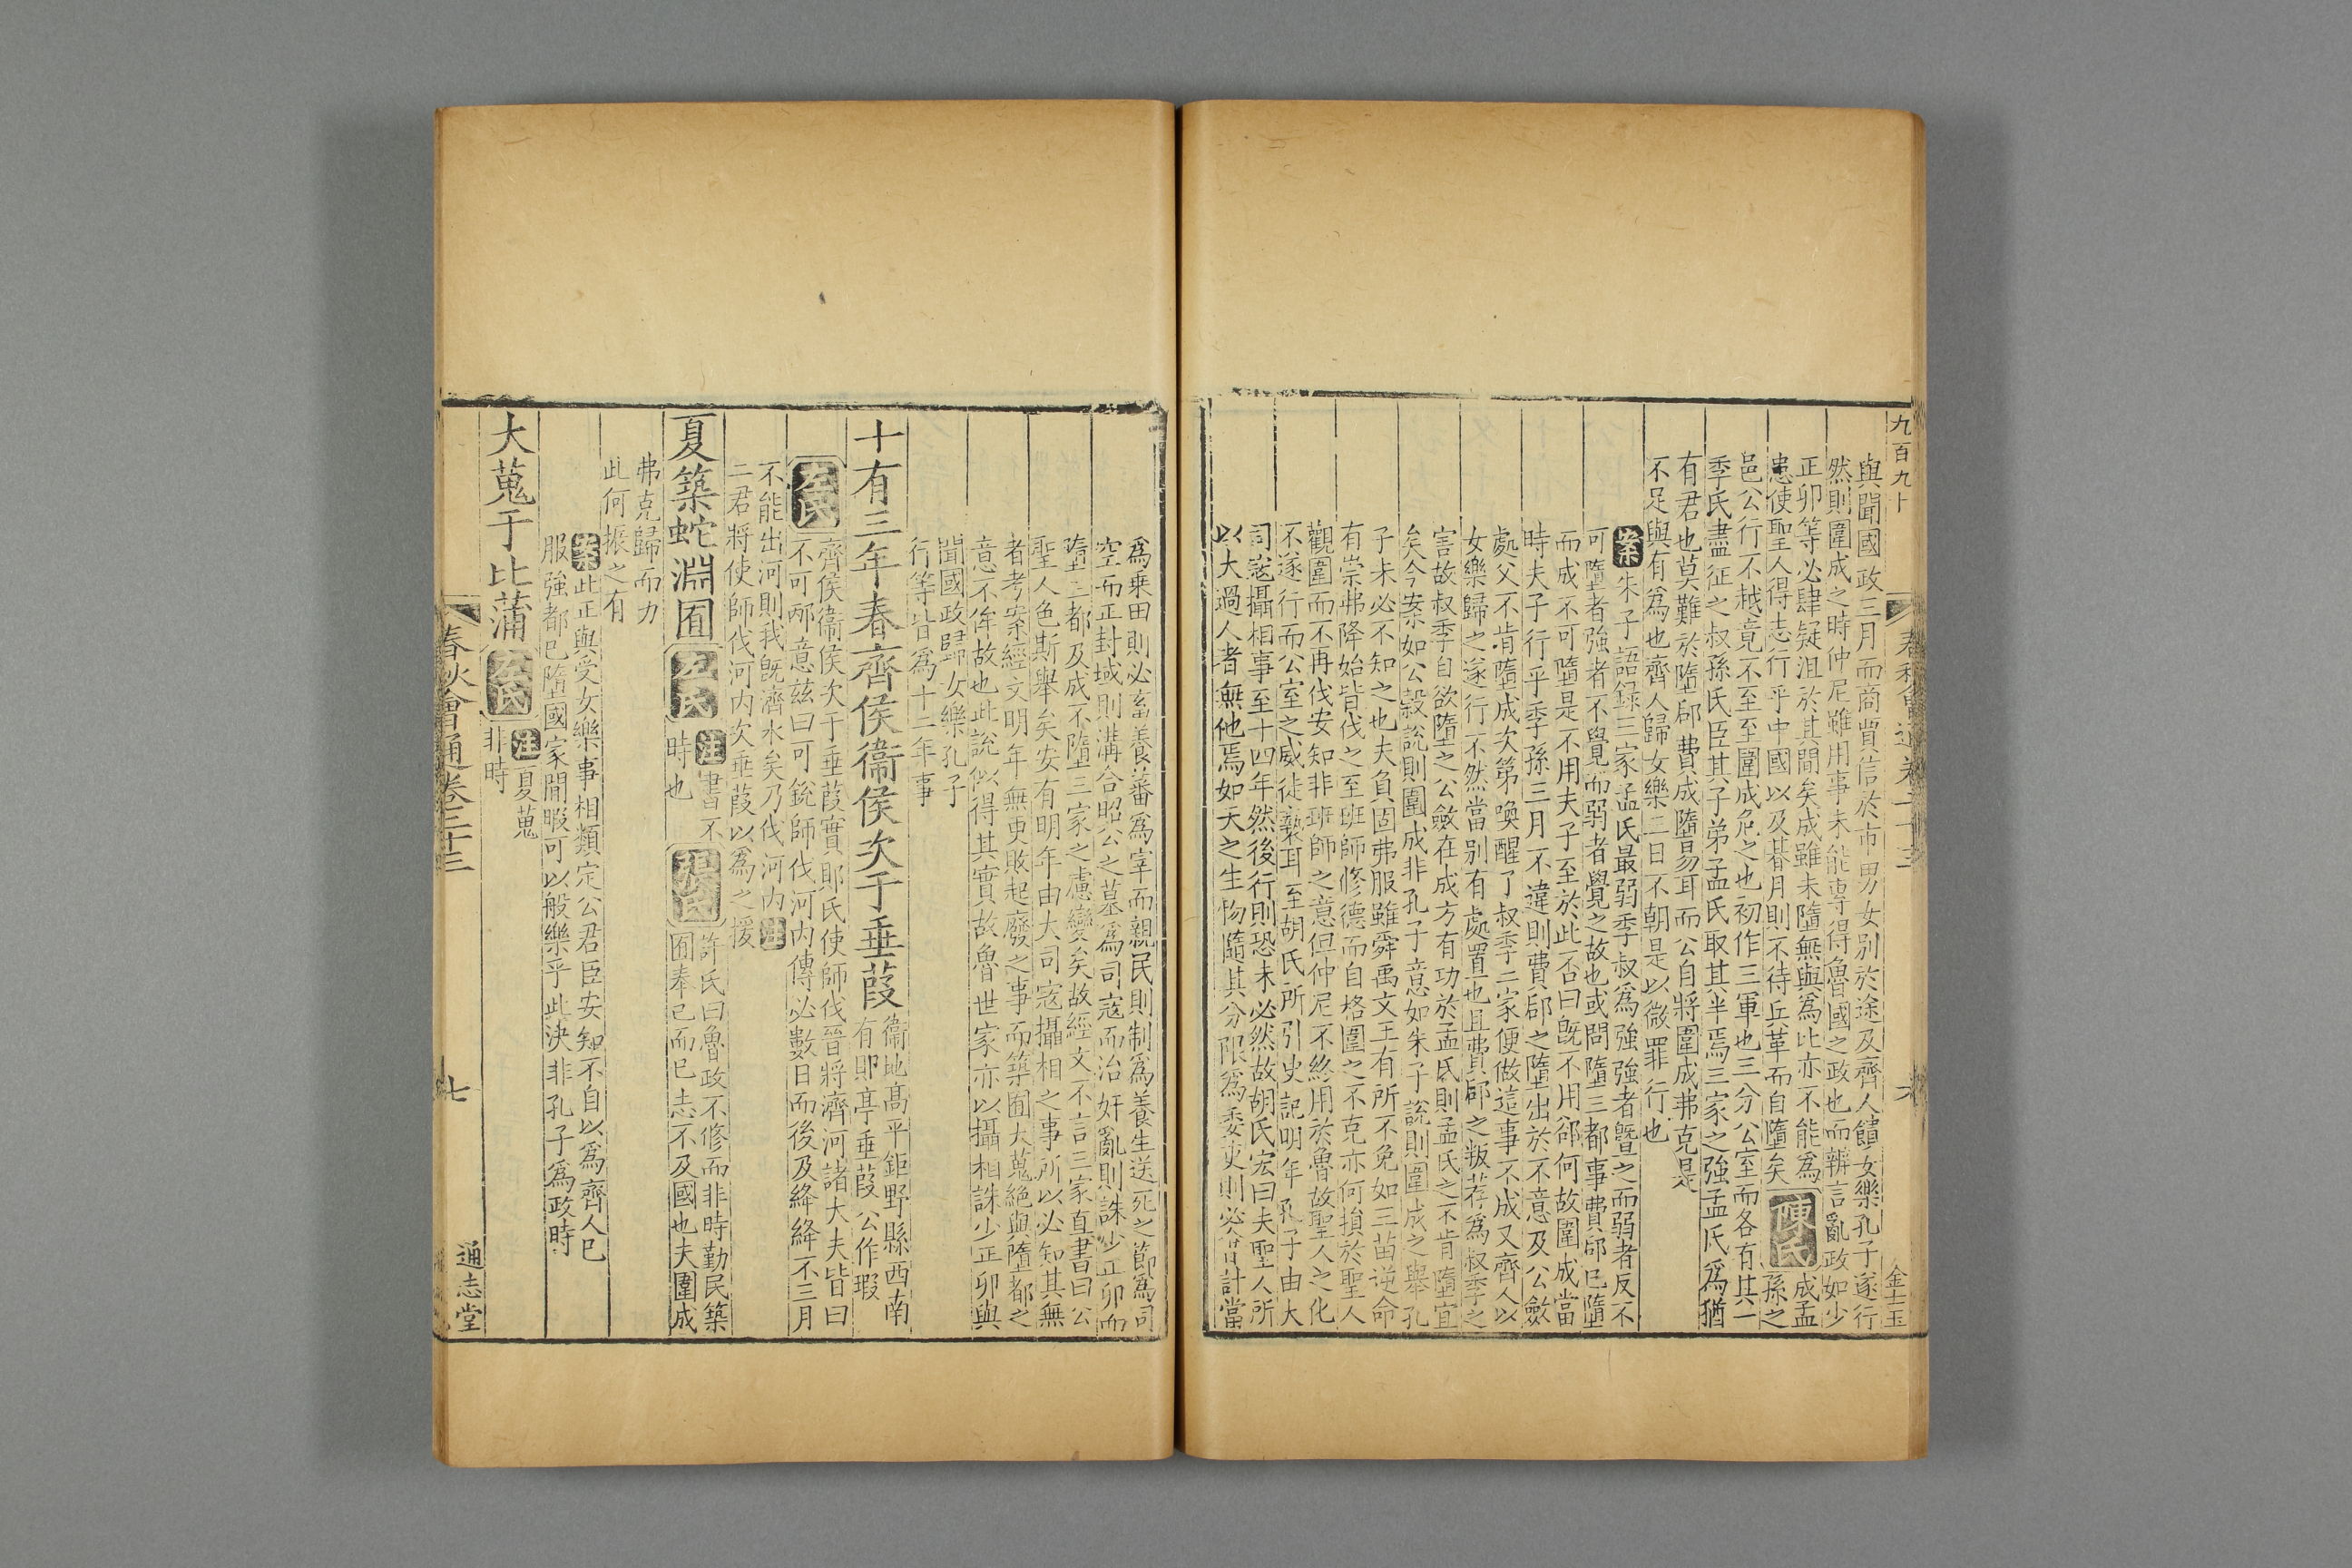 九百九十
春秋會通卷二十三
六
金士玉
與聞國政三月而商賈信於市男女別於途及齊人饋女樂孔子遂行
然則圍成之時仲尼雖用事未能專得魯國之政也而辨言亂政如少
正卯等必肆疑沮於其間矣成雖未墮無與為比亦不能為
患使聖人得志行乎中國以及朞月則不待兵革而自墮矣
陳氏
成孟
孫之
邑公行不越竟不至至圍成危之也初作三軍也三分公室而各有其一
季氏盡征之叔孫氏臣其子弟孟氏取其半焉三家之強孟氏為猶
有君也莫難於墮郈費成墮易耳而公自將圍成弗克是
不足與有為也齊人歸女樂三日不朝是以微罪行也
案朱子語録三家孟氏最弱季叔為強強者墮之而弱者反不
可墮者強者不覺而弱者覺之故也或問墮三都事費郈已墮
而成不可墮是不用夫子至於此否曰既不用卻何故圍成當
時夫子行乎季孫三月不違則費郈之墮出於不意及公斂
處父不肯墮成次第喚醒了叔季二家便做這事不成又齊人以
女樂歸之遂行不然當别有處置也且費郈之叛若為叔季之
害故叔季自欲墮之公斂在成方有功於孟氏則孟氏之不肯墮宜
矣今案如公穀說則圍成非孔子意如朱子說則圍成之舉孔
子未必不知之也夫負固弗服雖舜禹文王有所不免如三苗逆命
有崇弗降始皆伐之至班師修德而自格圍之不克亦何損於聖人
觀圍而不再伐安知非班師之意但仲尼不終用於魯故聖人之化
不遂行而公室之威徒褻耳至胡氏所引史記明年孔子由大
司宼攝相事至十四年然後行則恐未必然故胡氏宏曰夫聖人所
以大過人者無他焉如天之生物隨其分限為委吏則必會計當
為乗田則必畜養蕃為宰而親民則制為養生送死之節為司
空而正封域則溝合昭公之墓為司宼而治奸亂則誅少正卯而
墮三都及成不墮三家之慮變矣故經文不言三家直書曰公
聖人色斯舉矣安有明年由大司宼攝相之事所以必知其無
者考案經文明年無吏敗起廢之事而築囿大蒐絕與墮都之
意不侔故也此說似得其實故魯世家亦以攝相誅少正卯與
聞國政歸女樂孔子
行等皆為十二年事
十有三年春齊侯衞侯次于垂葭
衞地髙平鉅野縣西南
有郥亭垂葭公作瑕
左氏
齊侯衞侯次于垂葭實郥氏使師伐晉將濟河諸大夫皆曰
不可邴意兹曰可銳師伐河内傳必數日而後及絳絳不三月
不能出河則我旣濟水矣乃伐河内注
二君將使師伐河内次垂葭以為之援
夏築蛇淵囿
左氏
注書不
時也
張氏
許氏曰魯政不修而非時勤民築
囿奉已而已志不及國也夫圍成
弗克歸而力
此何振之有
案此正與受女樂事相類定公君臣安知不自以為齊人已
服強都已墮國家閒暇可以般樂乎此決非孔子為政時
大蒐于比蒲
左氏
注夏蒐
非時
春秋會通卷二十三
七
通志堂